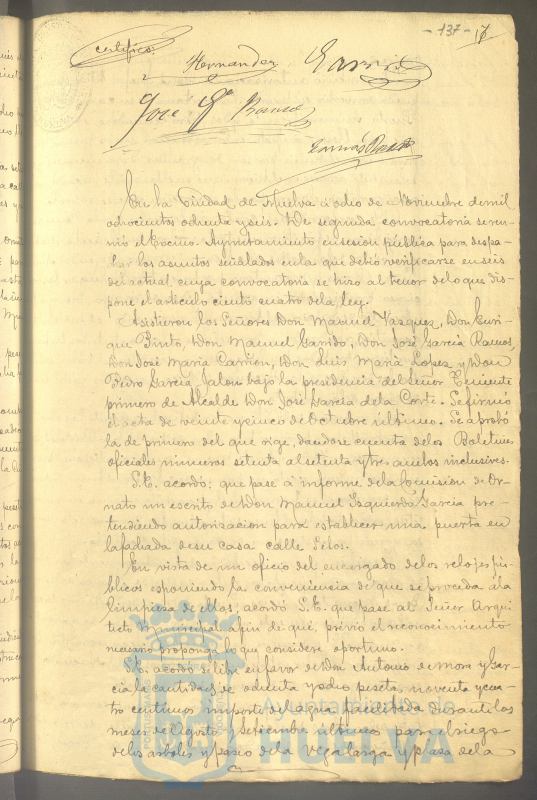 - 137 - 17
certifico:
Hernandez Garrido
José Ga Ramos
Tomás
En la Ciudad de Huelva á ocho de Noviembre de mil
ochocientos ochenta y seis. De segunda convocatoria se reu-
nió el Excmo. Ayuntamiento en sesion pública para despa-
char los asuntos señalados en la que debió verificarse en seis
del actual cuya convocatoria se hizo al tenor de lo que dis-
pone el articulo ciento cuatro de la ley.
Asistieron los Señores Don Manuel Vazquez, Don Enri-
que Pinto, Don Manuel Garrido, Don José Garcia Ramos,
Don José Maria Carrion, Don Luis Maria Lopez y Don
Pedro Garcia Jalon bajo la presidencia del Señor Teniente
primero de Alcalde Don José Garcia de la Corte. Se firmó
el acta de veinte y cinco de Octubre último. Se aprobó
la de primero del que rige, dandose cuenta de los Boletines
oficiales numeros setenta al setenta y tres ambos inclusives.
S.E. acordó: que pase á informe de la Comision de Or-
nato un escrito de Don Manuel Izquierdo Garcia pre-
tendiendo autorizacion para establecer una puerta en
la fachada de su casa calle Silos.
En vista de un oficio del encargado de los relojes pú-
blicos exponiendo la conveniencia de que se proceda á la
limpieza de ellos; acordó S.E. que pase al Señor Arqui-
tecto municipal á fin de que, prévio el reconocimiento
necesario proponga lo que considere oportuno.
S.E. acordó se libre en favor de Don Antonio de Mora y Gar-
cia la cantidad de ochenta y ocho peseta, noventa y cua-
tro centimos importe del agua facilitada durante los
meses de Agosto y Setiembre último para el riego
de los arboles y paseo de la Vega larga y plaza de la
Ayuntamiento de
HUELVA